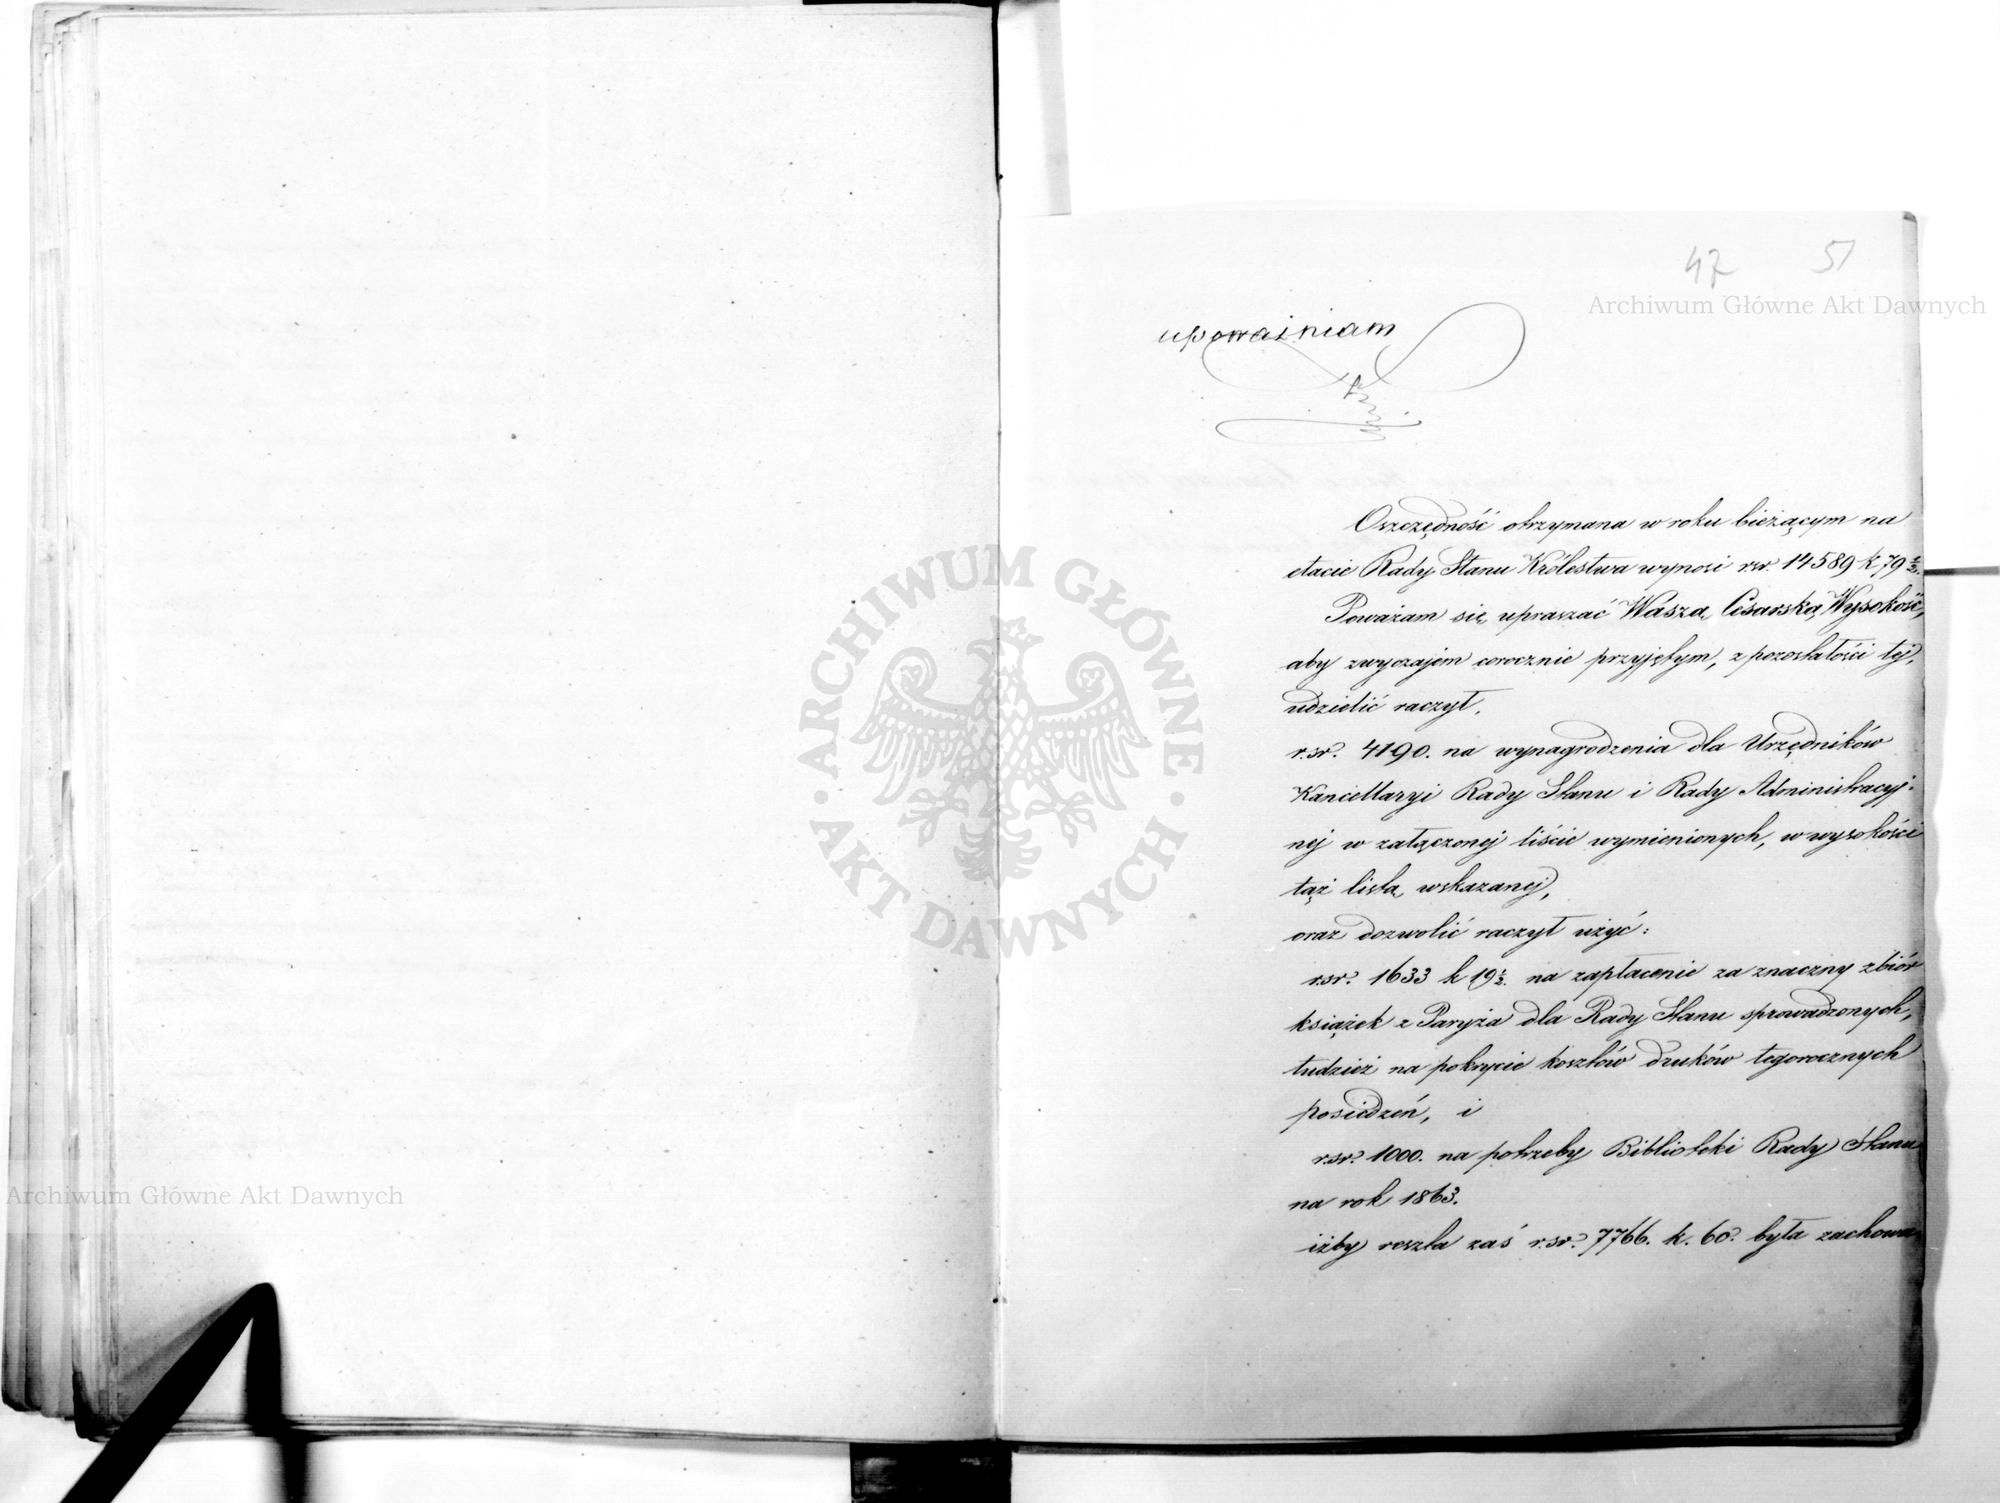 47 51
Archiwum Główne Akt Dawnych
upoważniam
Oszczędność otrzymana w roku bieżącym na
etacie Rady Stanu Królestwa wynosi rsr. 14589 k 79½.
Poważam się upraszać Waszą Cesarską Wysokość,
aby zwyczajem corocznie przyjętym, z pozostałości tej,
udzielić raczył,
r.sr. 4190. na wynagrodzenia dla Urzędników
Kancellaryi Rady Stanu i Rady Administracyj:
nej w załączonej liście wymienionych, w wysokości
tąż listą wskazanej,
oraz dozwolić raczył użyć:
rsr. 1633 k 19½. na zapłacenie za znaczny zbiór
książek z Paryża dla Rady Stanu sprowadzonych,
tudzież na pokrycie kosztów druków tegorocznych
posiedzeń, i
rsr. 1000. na potrzeby Biblioteki Rady Stanu
na rok 1863.
iżby reszta zaś r.sr. 7766. k. 60. była zachowa
ARCHIWUM GŁÓWNE
AKT DAWNYCH
Archiwum Główne Akt Dawnych